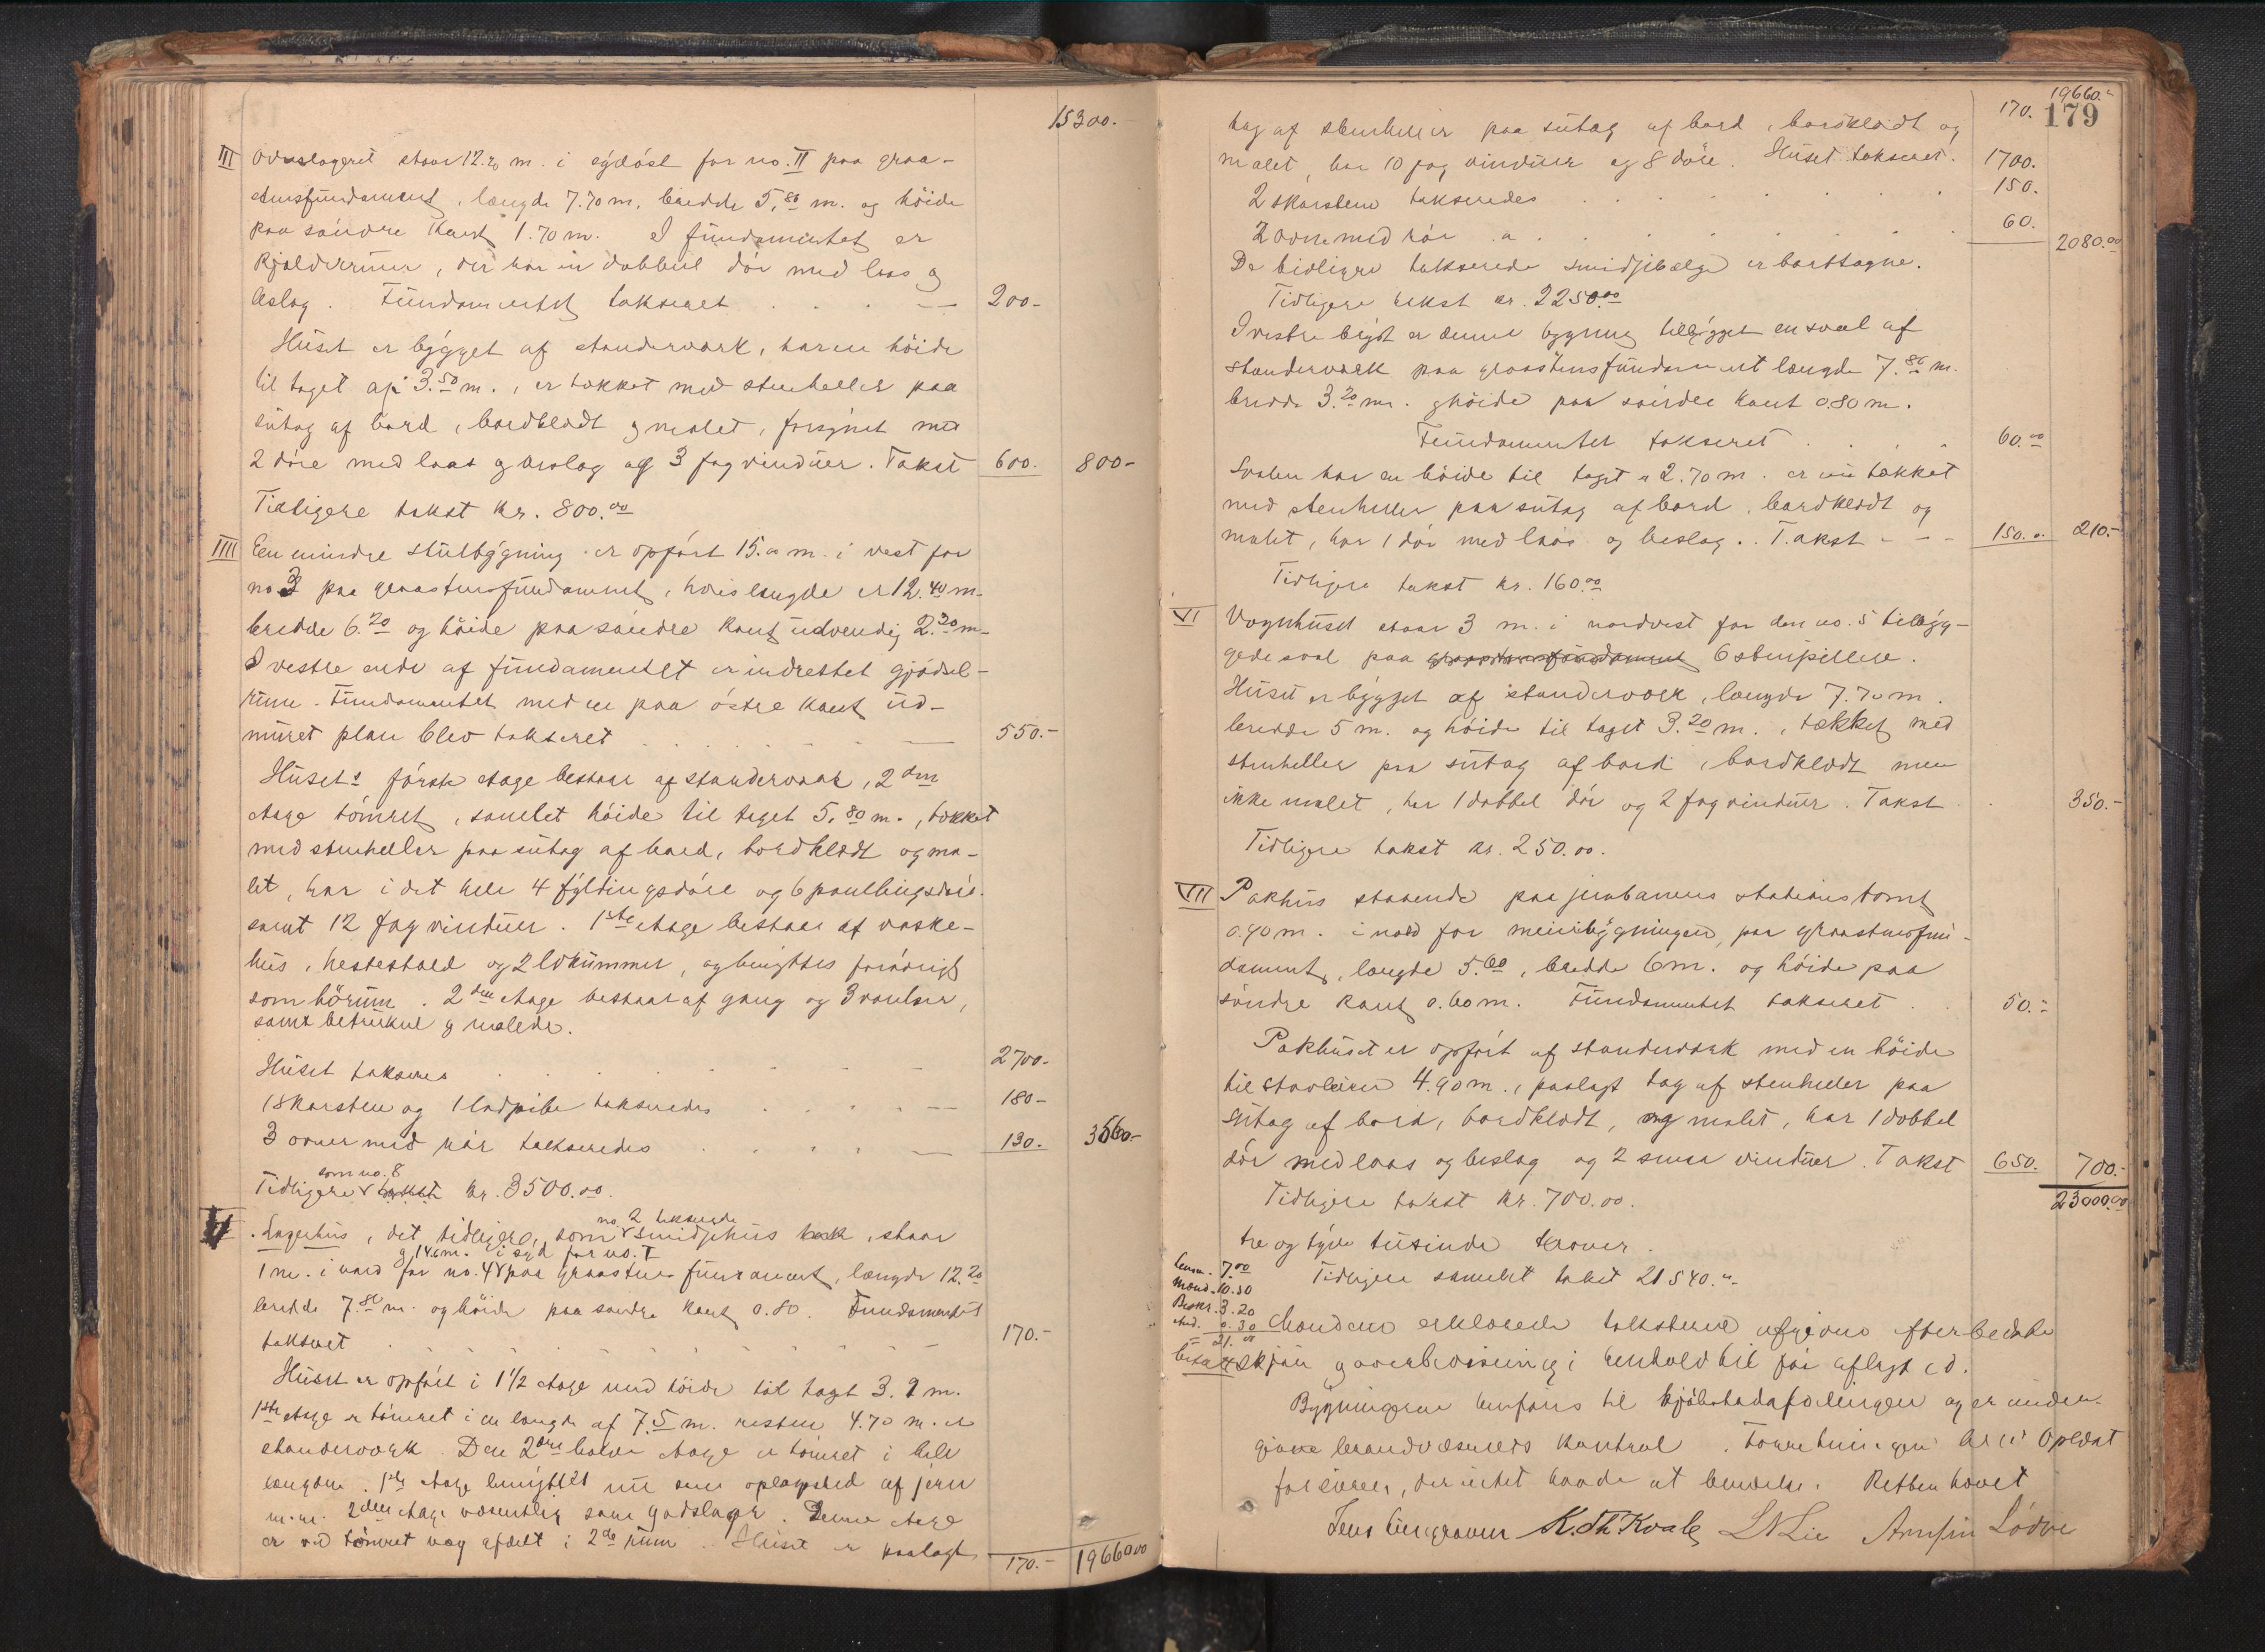 15300.-
III staar 12.20 m. i sydöst for no. II paa graa-
stensfundament, længde 7.70 m, bredde 5,80 m. og höide
paa söndre Kant 1.70 m. I fundamentet er
Kjælderrum, der har en dobbel dör med laas og
beslag. Fundamentet takseret . . . 200-
Huset er bygget af standerværk, har en höide
til taget af 3.50 m., er tækket med stenheller paa
sutag af bord, bordklædt og malet, forsynet med
2 döre med laas og beslag og 3 fag vinduer. Takst 600. 800-
Tidligere takst kr. 800.00
IIII Een mindre bygning er opfört 15.0 m. i vest for
no 3 paa graastensfundament, hvis længde er 12.40 m-
bredde 6.20 og höide paa söndre Kant udvendig 2.20 m-
I vestre ende af fundamentet er indrettet gjödsel-
rum. Fundamentet med en paa östre Kant ud-
muret plan blev takseret . . . 550.-
Husets förste etage bestaar af standerværk, 2den
etage tömret, samlet höide til taget 5.80 m., tækket
med stenheller paa sutag af bord, bordklædt og ma-
let, har i det hele 4 fyldingsdöre og 6 panelingsdöre
samt 12 fag vinduer. 1ste etage bestaar af vaske-
hus, hestestald og 2 lokummer, og benyttes forövrigt
som hörum. 2den etage bestaar af gang og 3 værelser,
samt betrukne og malede.
Huset takseres . . . 2700-
1 Skorsten og 1 ladpibe takseredes . . . 180-
3 ovner med rör takseredes . . . 130. 3560-
som no. 8
Tidligere takst kr. 3500.00.
no. 2 takserede
V. Lagerhus, det tidligere, som smidjehus, staar
og 14.6 m. i syd for no. I
1 m. i nord for no. 4 paa graastensfundament, længde 12.20
bredde 7.80 m. og höide paa söndre Kant 0.80. Fundamentet
takseret . . . 170.-
Huset er opfört i 1 1/2 etage med höide til taget 3.9 m.
1ste etage er tömret i en længde af 7.5 m. resten 4.70 m. er
standerværk. Den 2den halve etage er tömret i hele
længden. 1ste etage benyttet nu som oplagssted af jern
m.m. 2den etage væsentlig som godslager. Denne etage
er ved tömret væg afdelt i 2de rum. Huset er paalagt
170.- 19660.00
19660.-
170. 179
tag af stenheller paa sutag af bord, bordklædt og
malet, har 10 fag vinduer og 8 döre. Huset takseret. 1700.
2 skorstene takseredes . . . 150.
2 ovne med rör a . . . 60. 2080.00
De tidligere takserede smidjebælge er borttagne.
Tidligere takst kr. 2250.00
I vestre er denne bygning tilbygget en sval af
standerværk paa graastensfundament længde 7.80 m.
bredde 3.20 m. og höide paa söndre Kant 0.80 m.
Fundamentet takseret . . . 60.00
Svalen har en höide til taget a 2.70 m. er nu tækket
med stenheller paa sutag af bord, bordklædt og
malet, har 1 dör med laas og beslag. Takst - - - 150.- 210.-
Tidligere takst kr. 160.00
VI Vognhuset staar 3 m. i nordvest for den no. 5 tilbyg-
gede sval paa graastensfundament 6 stenpillere.
Huset er bygget af standerværk, længde 7.70 m.
bredde 5 m. og höide til taget 3.20 m., tækket med
stenheller paa sutag af bord, bordklædt men
ikke malet, har 1 dobbel dör og 2 fag vinduer. Takst . . 350.-
Tidligere takst kr. 250.00.
VII Pakhus staaende paa jernbanens stationstomt
0.90 m. i nord for meieribygningen, paa graastensfun-
dament, længde 5.60, bredde 6 m. og höide paa
söndre Kant 0.60 m. Fundamentet takseret . . 50.-
Pakhuset er opfört af standerværk med en höide
til 4.90 m., paalagt tag af stenheller paa
sutag af bord, bordklædt, og malet, har 1 dobbel
dör med laas og beslag og 2 smaa vinduer. Takst 650. 700.-
Tidligere takst kr. 700.00. 23000.00
tre og tyve tusinde Kroner.
7.00 Tidligere samlet takst 21540.-
Mænd. 10.50
Beskr. 3.20
0.30 Mændene erklærede taksterne afgivne efter bedste
21.00
betalt skjön og overbevisning i henhold til för aflagt ed.
Bygningerne henföres til kjöbstadafdelingen og er under-
givne brandvæsenets kontrol. Forretningen blev oplæst
for eieren, der intet havde at bemærke. Retten hævet
Jens K. Th. Kvale L N Lie Arnfin Lödve